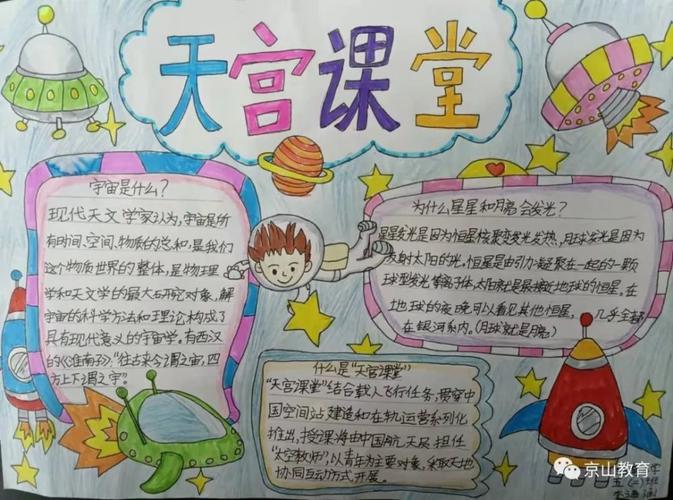 天宫课堂
宇宙是什么?
现代天文学家认为,宇宙是所
有时间、空间、物质的总和,是我们
这个物质世界的整体,是物理
学和天文学的最大研究对象,解
宇宙的科学方法和理论构成了
具有现代意义的宇宙学。有西汉
的《淮南子》,“往古来今谓之宙,四
方上下谓之宇”。
为什么星星和月亮会发光?
星星发光是因为恒星核聚变发光发热,月球发光是因为
反射太阳的光。恒星是由引力凝聚在一起的一颗
球型发光等离子体,太阳就是最接近地球的恒星。在
地球的夜晚可以看见其他恒星,几乎全都
在银河系内。(月球就是月亮)
什么是“天宫课堂”
“天宫课堂”结合载人飞行任务,贯穿中
国空间站建造和在轨运营系列化
推出,授课将由中国航天员担任
“太空教师”,以青年为主要对象,采取天地
协同互动方式开展。
京山教育
五(二)班